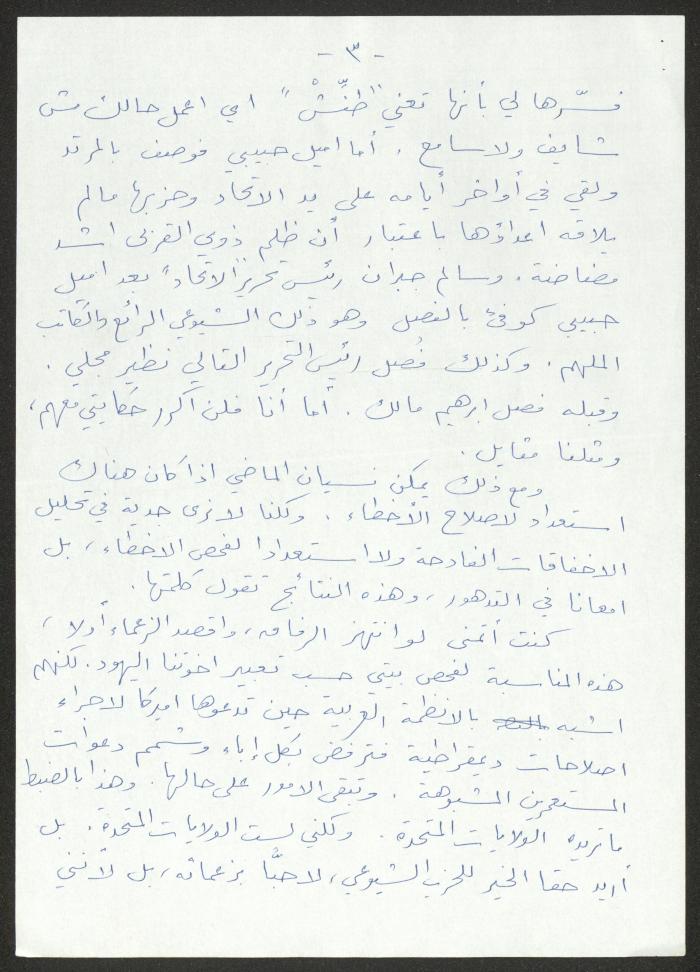 - ٣ -
فسّرها لي بأنها تعني "طنِّشْ" اي اعمل حالك مش
شايف ولا سامع . أما اميل حبيبي فوصف بالمرتد
ولقي في أواخر أيامه على يد الاتحاد وحزبها مالم
يلاقه اعداؤها باعتبار أن ظلم ذوي القربى اشد
مضاضة . وسالم جبران رئيس تحرير "الاتحاد" بعد اميل
حبيبي كوفئ بالفصل وهو ذلك الشيوعي الرائع والكاتب
الملهم . وكذلك فُصل رئيس التحرير التالي نظير مجلي .
وقبله فصل ابرهيم مالك . أما أنا فلن أكرر حكايتي معهم ،
ومثلنا مقابل .
ومع ذلك يمكن نسيان الماضي اذا كان هناك
استعداد لاصلاح الأخطاء . ولكننا لا نرى جدية في تحليل
الاخفاقات الفادحة ولا استعدادا لفحص الاخطاء ، بل
امعانا في التدهور ، وهذه النتائج تقول كلمتها .
كنت أتمنى لو انتهز الرفاق ، واقصد الزعماء أولا ،
هذه المناسبة لفحص بيتي حسب تعبير اخوتنا اليهود . لكنهم
اشبه بالانظمة العربية حين تدعوها امريكا لاجراء
اصلاحات ديمقراطية فترفض بكل إباء وشمم دعوات
المستعمرين المشبوهة . وتبقى الامور على حالها . وهذا بالضبط
ما تريده الولايات المتحدة . ولكني لست الولايات المتحدة . بل
أريد حقا الخير للحزب الشيوعي ، لا حبًّا بزعمائه ، بل لأنني